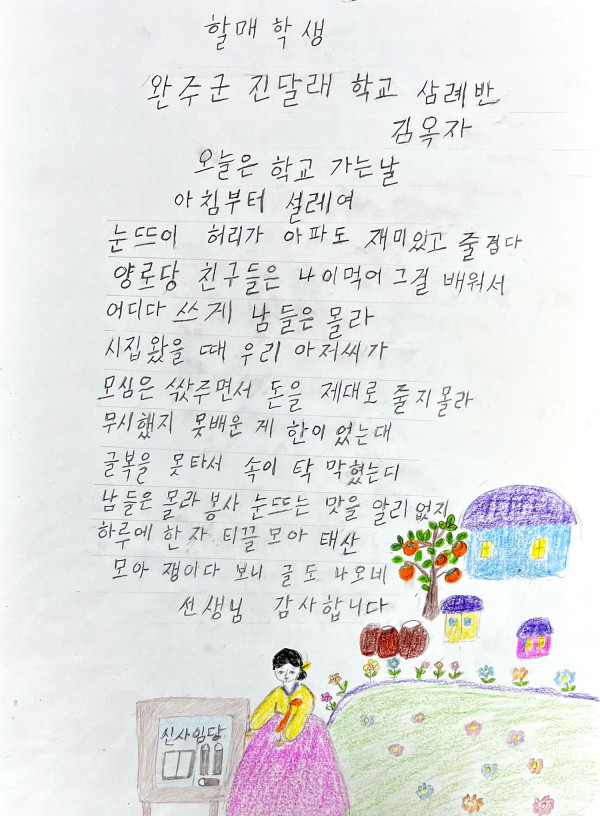 할매 학생
완주군 진달래 학교 삼례반
김옥자
오늘은 학교 가는날
아침부터 설레여
눈뜨이 허리가 아파도 재미있고 줄겁다
양로당 친구들은 나이먹어 그걸 배워서
어디다 쓰게 남들은 몰라
시집왔을 때 우리 아저씨가
모심은 삯주면서 돈을 제대로 줄지몰라
무시했지 못배운 게 한이었는대
글복을 못타서 속이 탁 막혔는디
남들은 몰라 봉사 눈뜨는 맛을 알리없지
하루에 한 자 티끌 모아 태산
모아 쟁이다 보니 글도 나오네
선생님 감사합니다
신사임당